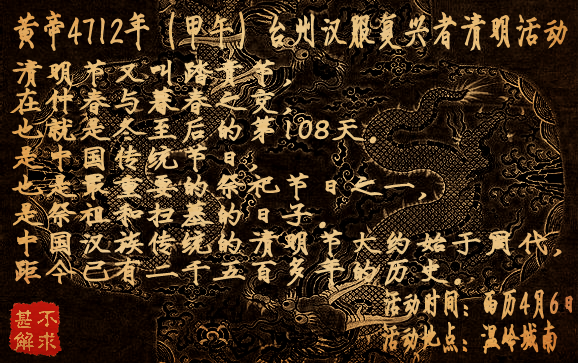 黄帝4712年（甲午）台州汉服复兴者清明活动
清明节又叫踏青节，
在仲春与暮春之交，
也就是冬至后的第108天。
是中国传统节日，
也是最重要的祭祀节日之一，
是祭祖和扫墓的日子。
中国汉族传统的清明节大约始于周代，
距今已有二千五百多年的历史。
活动时间：西历4月6日
活动地点：温岭城南
不求
甚解